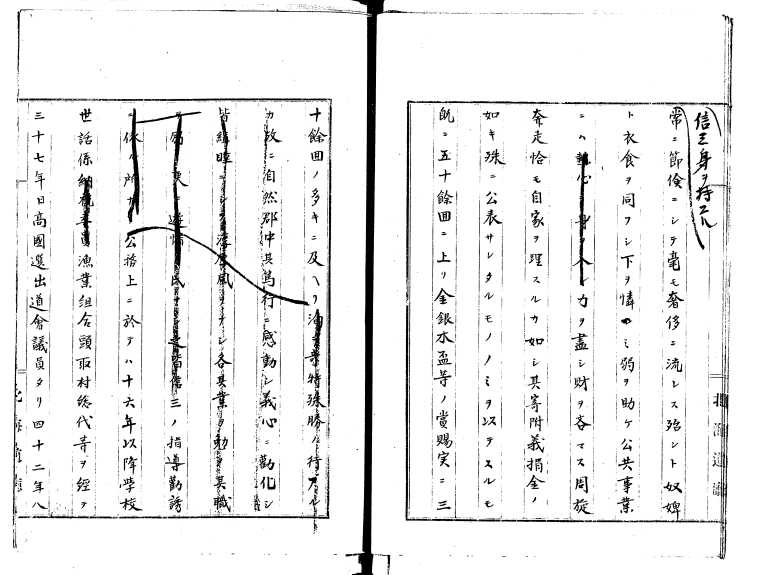 信三身ヲ持スル
常ニ節倹ニシテ毫モ奢侈ニ流レス殆ント奴婢
ト衣食ヲ同フシ下ヲ憐ミ弱ヲ助ケ公共事業
ニハ熱心身ヲ入レ力ヲ盡シ財ヲ吝マス周旋
奔走恰モ自家ヲ理スルカ如シ其寄附義捐金ノ
如キ殊ニ公表サレタルモノノミヲ以テスルモ
既ニ五十餘回ニ上リ金銀木盃等ノ賞賜実ニ三
十餘回ノ多キニ及ヘリ
特殊勝ノ行アル
カ故ニ自然郡中其篤行ニ感動シ義心ニ勸化シ
皆 ニシテ 風 ナシ各其業ヲ勤メ其職
三ノ指導勸誘
ニ係ル所 公務上ニ於テハ十六年以降学校
世話係 漁業組合頭取村総代等ヲ経テ
三十七年日高國選出道會議員タリ四十二年八
北海道廳
北海道廳